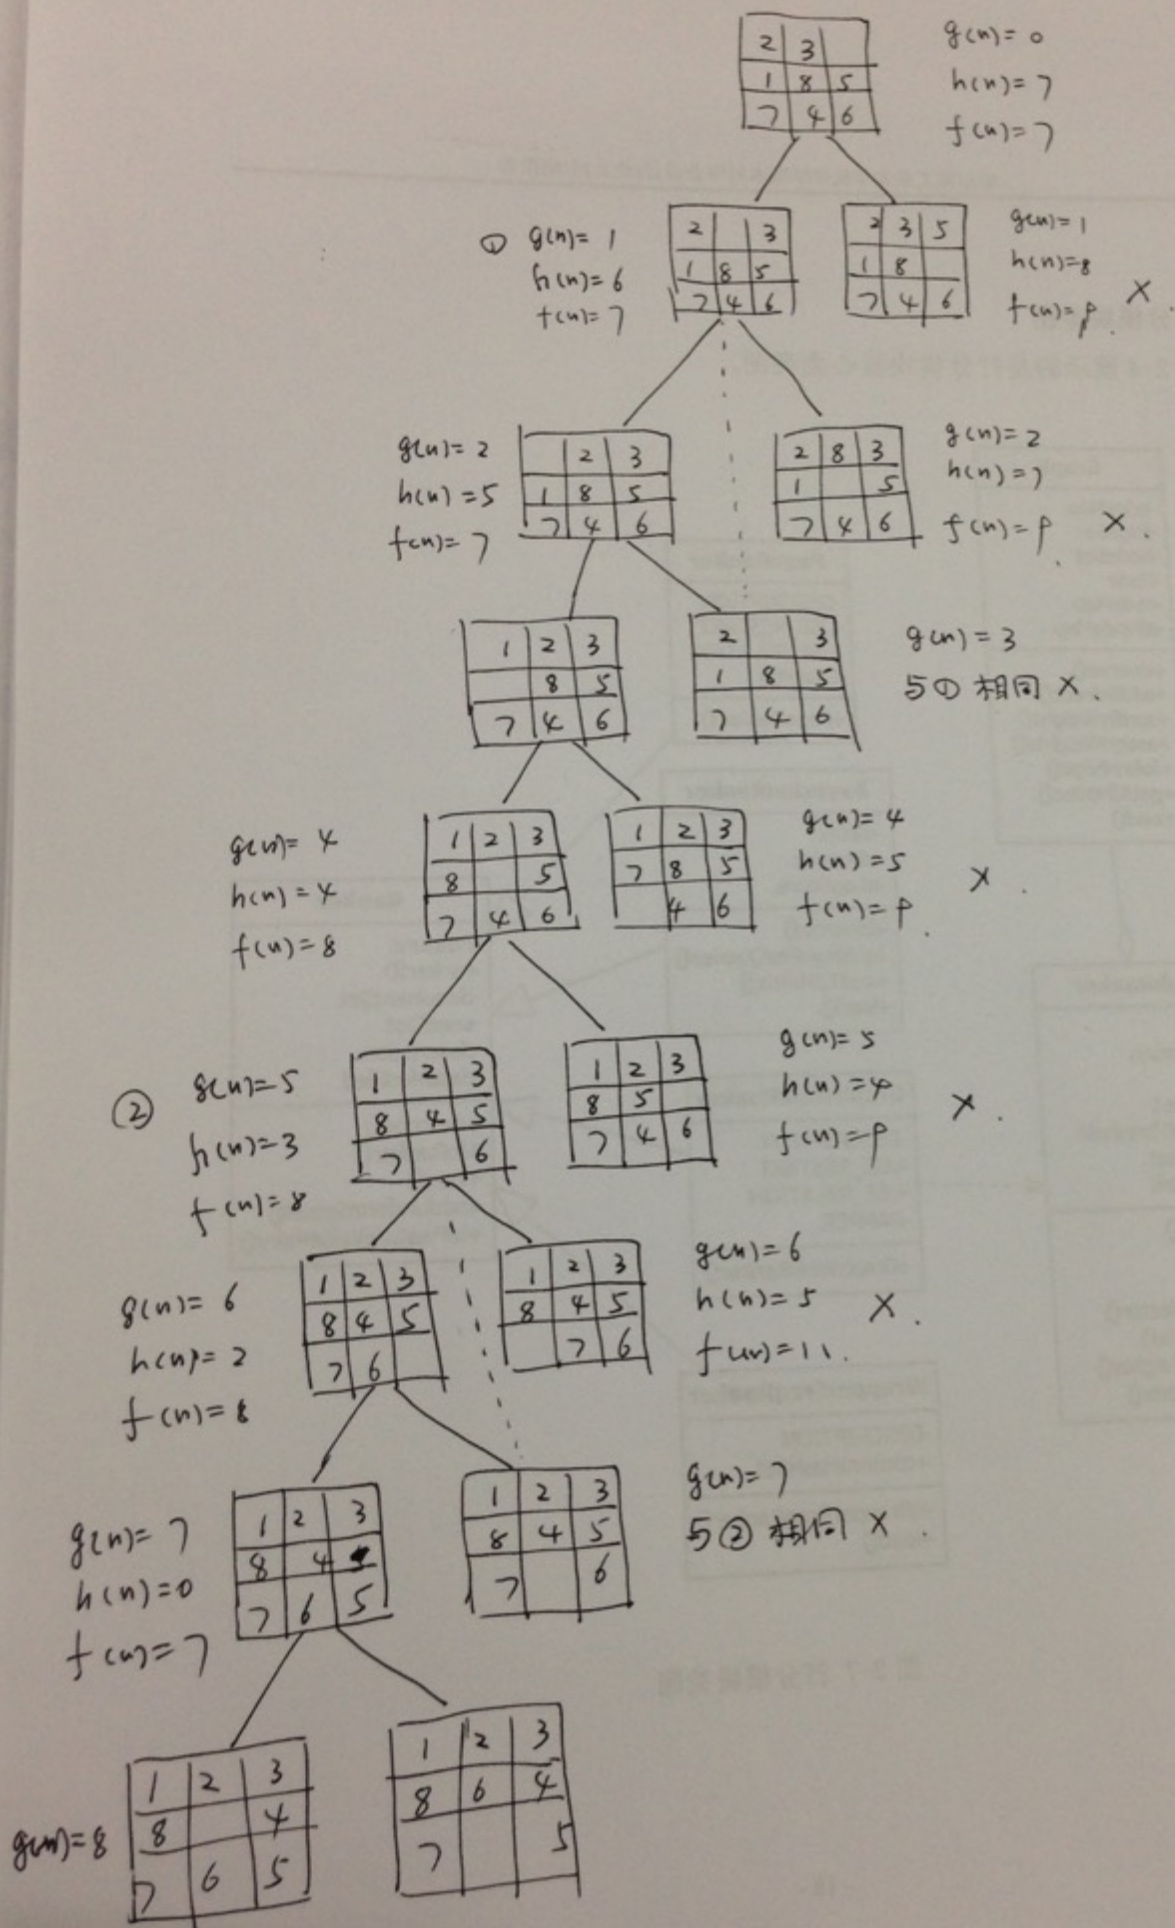 2 3
1 8 5
7 4 6
g(n)= 0
h(n)= 7
f(n)= 7
① g(n)= 1
h(n)= 6
f(n)= 7
2 3
1 8 5
7 4 6
2 3 5
1 8
7 4 6
g(n)=1
h(n)=8
f(n)=9 ×
g(n)= 2
h(n)=5
f(n)= 7
2 3
1 8 5
7 4 6
2 8 3
1 5
7 4 6
g(n)=2
h(n)=7
f(n)=9 ×.
1 2 3
8 5
7 4 6
2 3
1 8 5
7 4 6
g(n)=3
与① 相同 ×.
g(n)= 4
h(n)=4
f(n)=8
1 2 3
8 5
7 4 6
1 2 3
7 8 5
4 6
g(n)= 4
h(n)=5
f(n)=9 × .
② g(n)=5
h(n)=3
f(n)=8
1 2 3
8 4 5
7 6
1 2 3
8 5
7 4 6
g(n)= 5
h(n)=4
f(n)=9 × .
g(n)= 6
h(n)= 2
f(n)= 8
1 2 3
8 4 5
7 6
1 2 3
8 4 5
7 6
g(n)=6
h(n)=5 ×.
f(n)=11.
g(n)= 7
h(n)=0
f(n)=7
1 2 3
8 4
7 6 5
1 2 3
8 4 5
7 6
g(n)=7
与② 相同 × .
g(n)=8
1 2 3
8 4
7 6 5
1 2 3
8 6 4
7 5